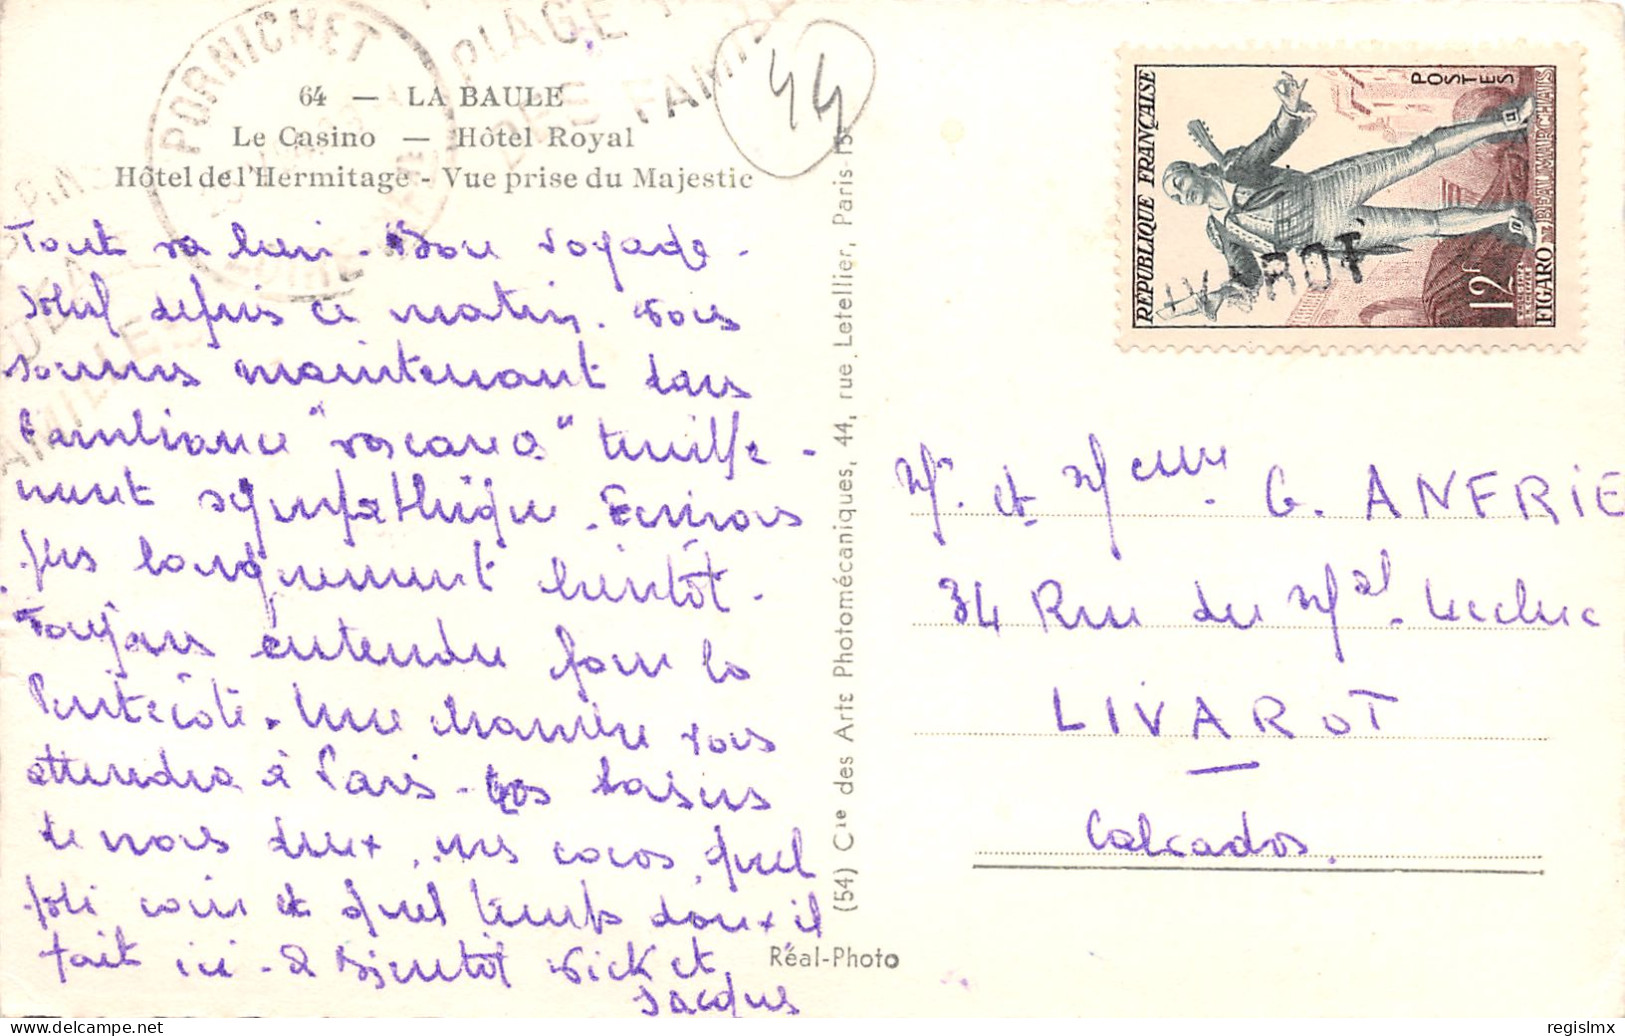 PORNICHET
PLAGE
DES FAMI
44
64 — LA BAULE
Le Casino — Hôtel Royal
Hôtel de l'Hermitage - Vue prise du Majestic
Tout va bien - Bon voyage -
depuis ce matin. Nous
sommes maintenant dans
l'ambiance "vacances"
sympathique. Ecrirons
plus longuement bientôt -
Toujours entendu pour la
Pentecôte. Une chambre vous
attendra à Paris - Gos baisers
de nous deux, mes cocos, quel
joli coin et quel temps doux il
fait ici - A Bientôt Vick et
Jacques
(54) Cie des Arts Photomécaniques, 44, rue Letellier, Paris-15
Réal-Photo
POSTES
RÉPUBLIQUE FRANÇAISE
FIGARO - BEAUMARCHAIS
12F
LIVAROT
Mr. et Mme G. ANFRIE
34 Rue du Mal. Leclerc
LIVAROT
Calvados.
© regislmx